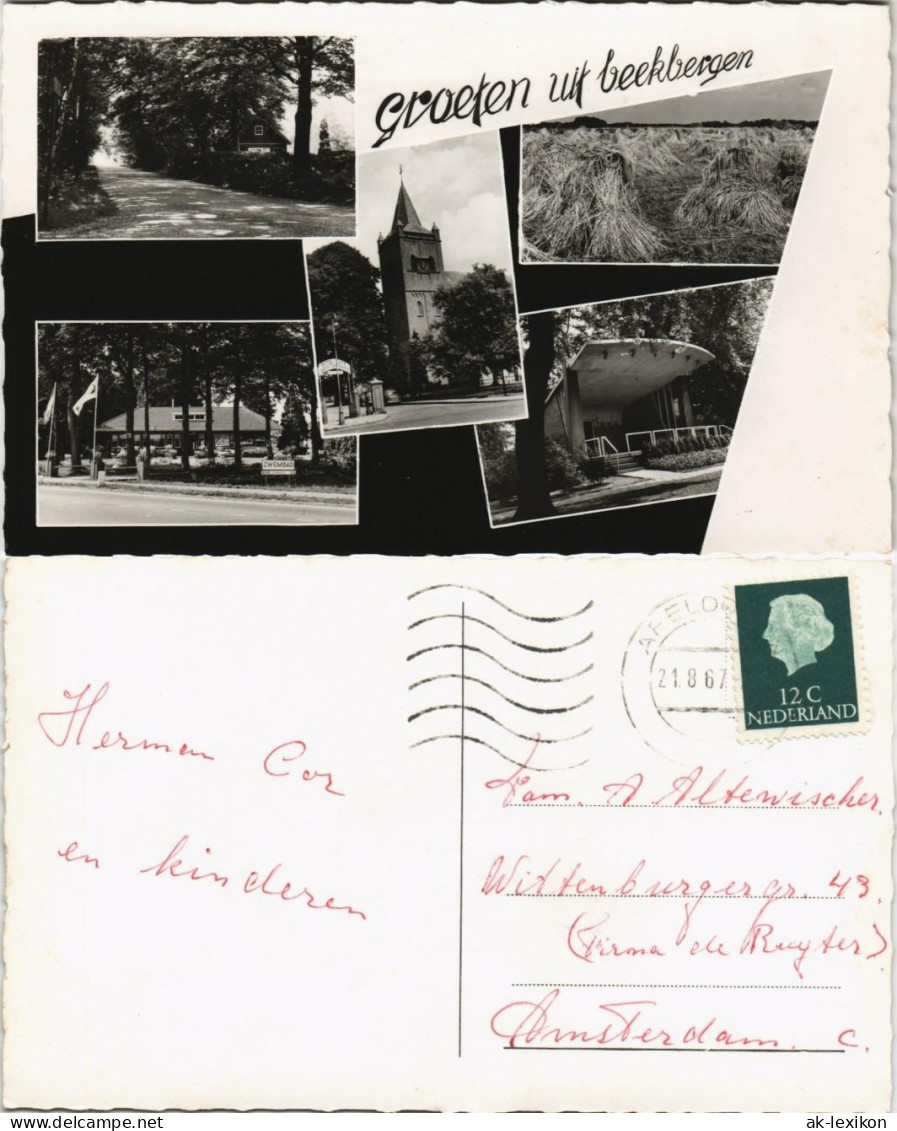 Groeten uit beekbergen
ZWEMBAD
21.8.67
12 C
NEDERLAND
Herman Cor
en kinderen
Fam. A Altewischer.
Wittenburgergr. 43.
(Firma de Ruyter)
Amsterdam. C.
www.delcampe.net
ak-lexikon